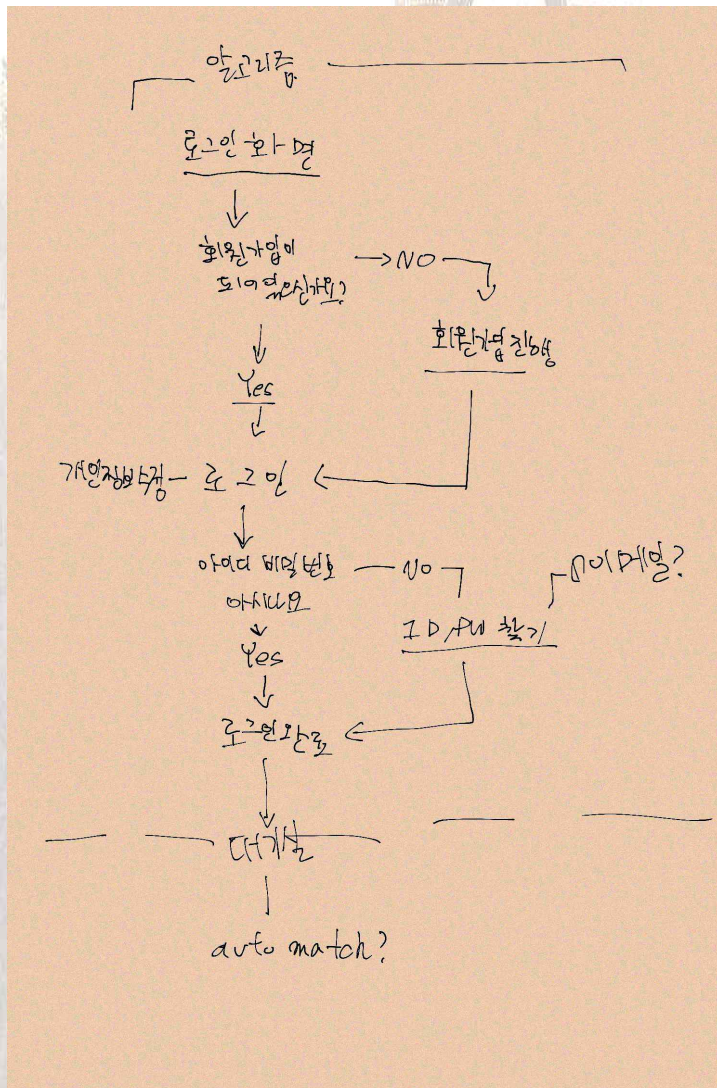 알고리즘
로그인 화면
회원가입이 → NO
되어있으신가요?
회원가입 진행
Yes
개인정보수정 - 로그인
아이디 비밀번호 - NO
아시나요
이메일?
ID/PW 찾기
Yes
로그인완료
대기실
auto match?